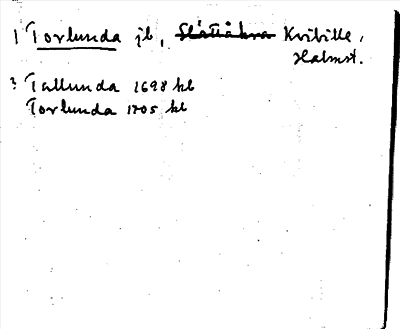 1 Torlunda jb, Slättåkra Kvibille,
Halmst.
? Tallunda 1698 kb
Torlunda 1705 kb